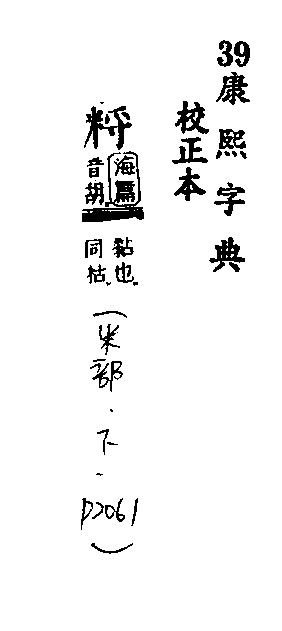 39康熙字典
校正本
海篇
音胡
黏也
同
(米部.下.P2061)